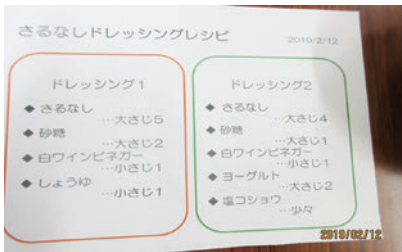 さるなしドレッシングレシピ
2019/2/12
ドレッシング1
◆ さるなし
…大さじ5
◆ 砂糖
…大さじ2
◆ 白ワインビネガー
…小さじ1
◆ しょうゆ
…小さじ1
ドレッシング2
◆ さるなし
…大さじ4
◆ 砂糖
…大さじ1
◆ 白ワインビネガー
…小さじ1
◆ ヨーグルト
…大さじ2
◆ 塩コショウ
…少々
2019/02/12